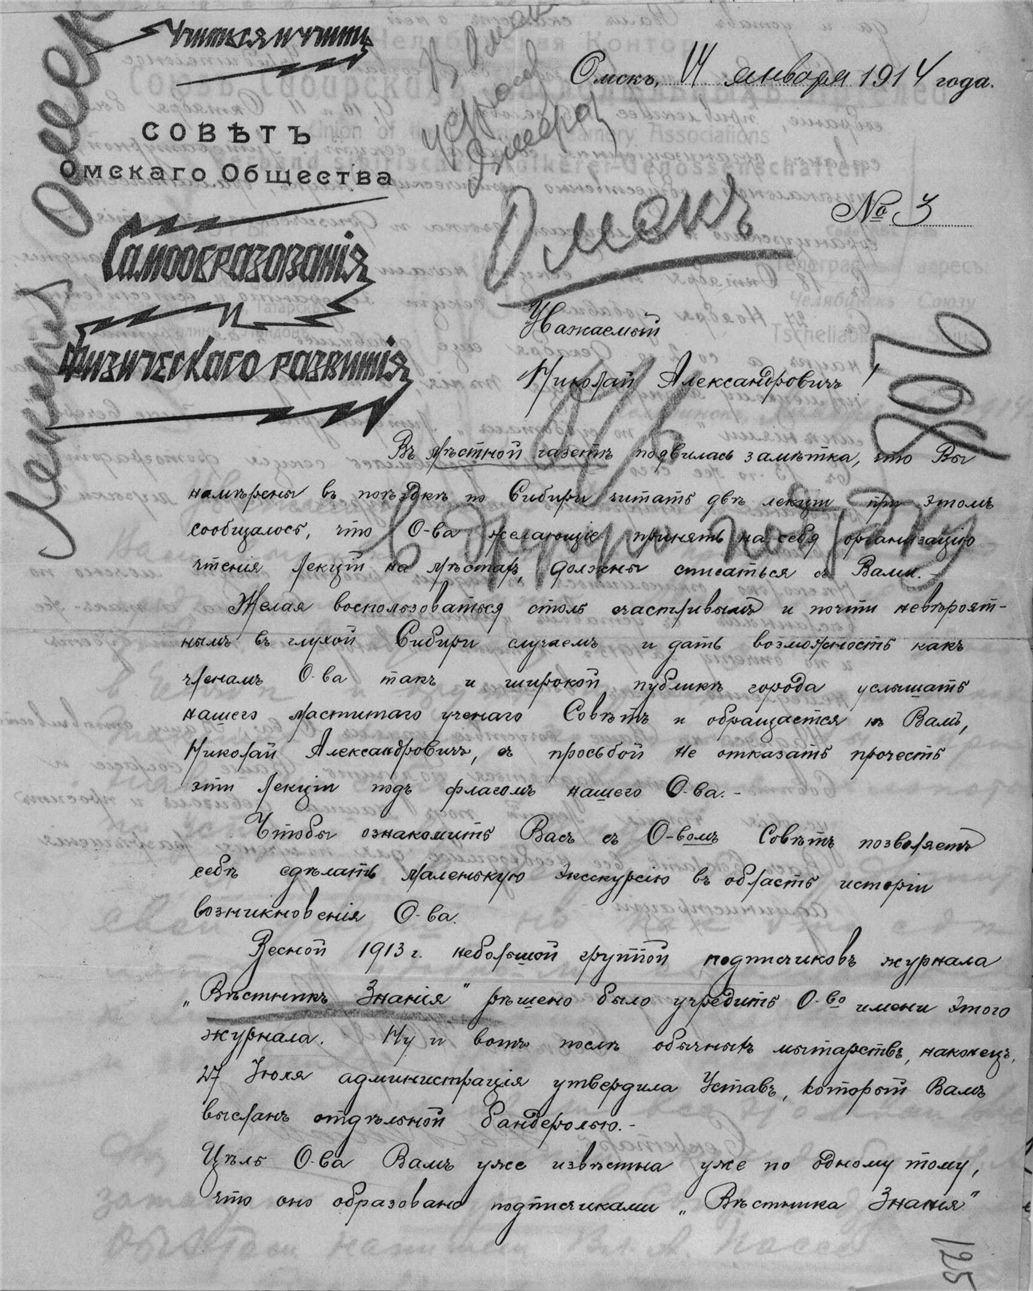 Учиться и учить
СОВѢТЪ
Омскаго Общества
Самообразованія
и
Физическаго развитія
Омскъ, 14 января 1914 года.
№ 3
Омскъ
Лекция
Уважаемый
Николай Александровичъ!
Въ мѣстной газетѣ появилась замѣтка, что Вы
намѣрены въ поѣздкѣ по Сибири читать двѣ лекціи при этомъ
сообщалось, что О-ва желающіе принять на себя организацію
чтенія лекцій на мѣстахъ, должны списаться съ Вами.
въ другую поѣздку
Желая воспользоваться столь счастливымъ и почти невѣроят-
нымъ въ глухой Сибири случаемъ и дать возможность какъ
членамъ О-ва такъ и широкой публикѣ города услышать
нашего маститаго ученаго Совѣтъ и обращается къ Вамъ,
Николай Александровичъ, съ просьбой не отказать прочесть
эти лекціи подъ флагомъ нашего О-ва.-
Чтобы ознакомить Васъ съ О-вомъ Совѣтъ позволяетъ
себѣ сдѣлать маленькую экскурсію въ область исторіи
возникновенія О-ва.
Весной 1913 г. небольшой группой подписчиковъ журнала
„Вѣстникъ Знанія" рѣшено было учредить О-во имени этого
журнала. Ну и вотъ послѣ обычныхъ мытарствъ, наконецъ,
27 Іюля администрація утвердила Уставъ, который Вамъ
высланъ отдѣльной бандеролью.-
Цѣль О-ва Вамъ уже извѣстна уже по одному тому,
что оно образовано подписчиками „Вѣстника Знанія"
195